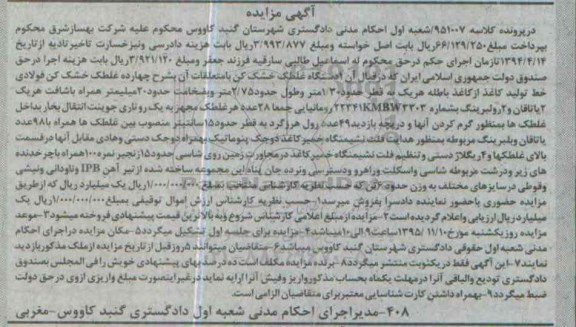 آگهی مزایده
درپرونده کلاسه ۹۵۱۰۰۷/شعبه اول احکام مدنی دادگستری شهرستان گنبد کاووس محکوم علیه شرکت بهسازشرق محکوم
بپرداخت مبلغ۶۶/۱۲۹/۲۵۰ریال بابت اصل خواسته ومبلغ ۳/۹۹۳/۸۷۷ریال بابت هزینه دادرسی ونیزخسارت تاخیرتادیه ازتاریخ
۱۳۹۴/۴/۱۴تازمان اجرای حکم درحق محکوم له اسماعیل طالبی سارقیه فرزند جعفر ومبلغ ۳/۹۲۱/۱۲۰ریال بابت هزینه اجرا درحق
صندوق دولت جمهوری اسلامی ایران که درقبال آن ۱دستگاه غلطک خشک کن بامتعلقات آن بشرح چهارده غلطک خشک کن فولادی
خط تولید کاغذ ازکاغذ باطله هریک به قطر حدود۱۳۰متر وطول حدود۲/۷۵متر وضخامت حدود۲۰میلیمتر همراه باشافت هریک
۲یاتاقان و۲رولبرینگ بشماره ۲۲۲۴۱KMBW۳۳۰۳ رومانیایی جمعا ۲۸عدد هرغلطک مجهز به یک روتاری جوینت انتقال بخار بداخل
غلطک ها بمنظور گرم کردن آنها و دریچه بازدید۴۹عدد رول هرزگرد به قطر حدود۱۵سانتیتر منصوب بین غلطک ها همراه با۹۸عدد
یاتاقان وبلبرینگ مربوطه بمنظور هدایت فلت نشیمنگاه خمیرکاغذ دوجک پنوماتیک بهمراه دوجک دستی وهادی مقابل آنها درقسمت
بالای غلطکها و۴ریگلاژ دستی و تنظیم فلت نشیمنگاه خمیرکاغذ درمجاورت زمین روی شاسی حدود۱۵زنجیر نمره۱۰۰همراه باچرخدنده
های زیر ودرشت مربوطه شاسی واسکلت وراهرو ودسترسی ونرده جان پناه این مجموعه ساخته شده از تیر آهن IPB وناودانی ونبشی
وقوطی درسایزهای مختلف به وزن حدود تن که حسب نظریه کارشناسی منتخب بمبلغ۱/۰۰۰/۰۰۰/۰۰۰ریال یک میلیارد ریال که ازطریق
مزایده حضوری باحضور نماینده دادسرا بفروش میرسد۱-حسب نظریه کارشناس ارزش اموال توقیفی بمبلغ۱/۰۰۰/۰۰۰/۰۰۰ریال یک
میلیارد ریال ارزیابی واعلام گردیده است۲-مزایده ازمبلغ اعلامی کارشناس شروع وبه بالاترین قیمت پیشنهادی فروخته میشود۳-موعد
مزایده روزیکشنبه مورخ۱۳۹۵/۱۱/۱۰ساعت۹الی۱۰میباشد۴-مزایده برای جلسه اول تشکیل میگردد۵-مکان مزایده دراجرای احکام
مدنی شعبه اول حقوقی دادگستری شهرستان گنبد کاووس میباشد۶-متقاضیان میتوانند ۵روزقبل از تاریخ مزایده ازملک مذکوربازدید
نمایند۷-این آگهی فقط دریکنوبت منتشر میگردد۸-برنده مزایده مکلف است ده درصدبهای پیشنهادی خویش را فی المجلس بصندوق
دادگستری تودیع والباقی آنرا درمهلت یکماه بحساب مذکورواریز وفیش آنرا ارایه نماید درغیراینصورت مبلغ واریزی ازوی درحق دولت
ضبط میگردد۹-بهمراه داشتن کارت شناسایی معتبربرای متقاضیان الزامی است.
۴۰۸-مدیراجرای احکام مدنی شعبه اول دادگستری گنبد کاووس-مغربی